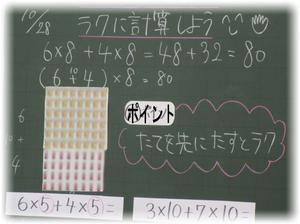 10/28
ラクに計算しよう
6×8+4×8=48+32=80
(6+4)×8=80
10
6
10
4
ポイント
たてを先にたすとラク
6×5+4×5=
3×10+7×10=